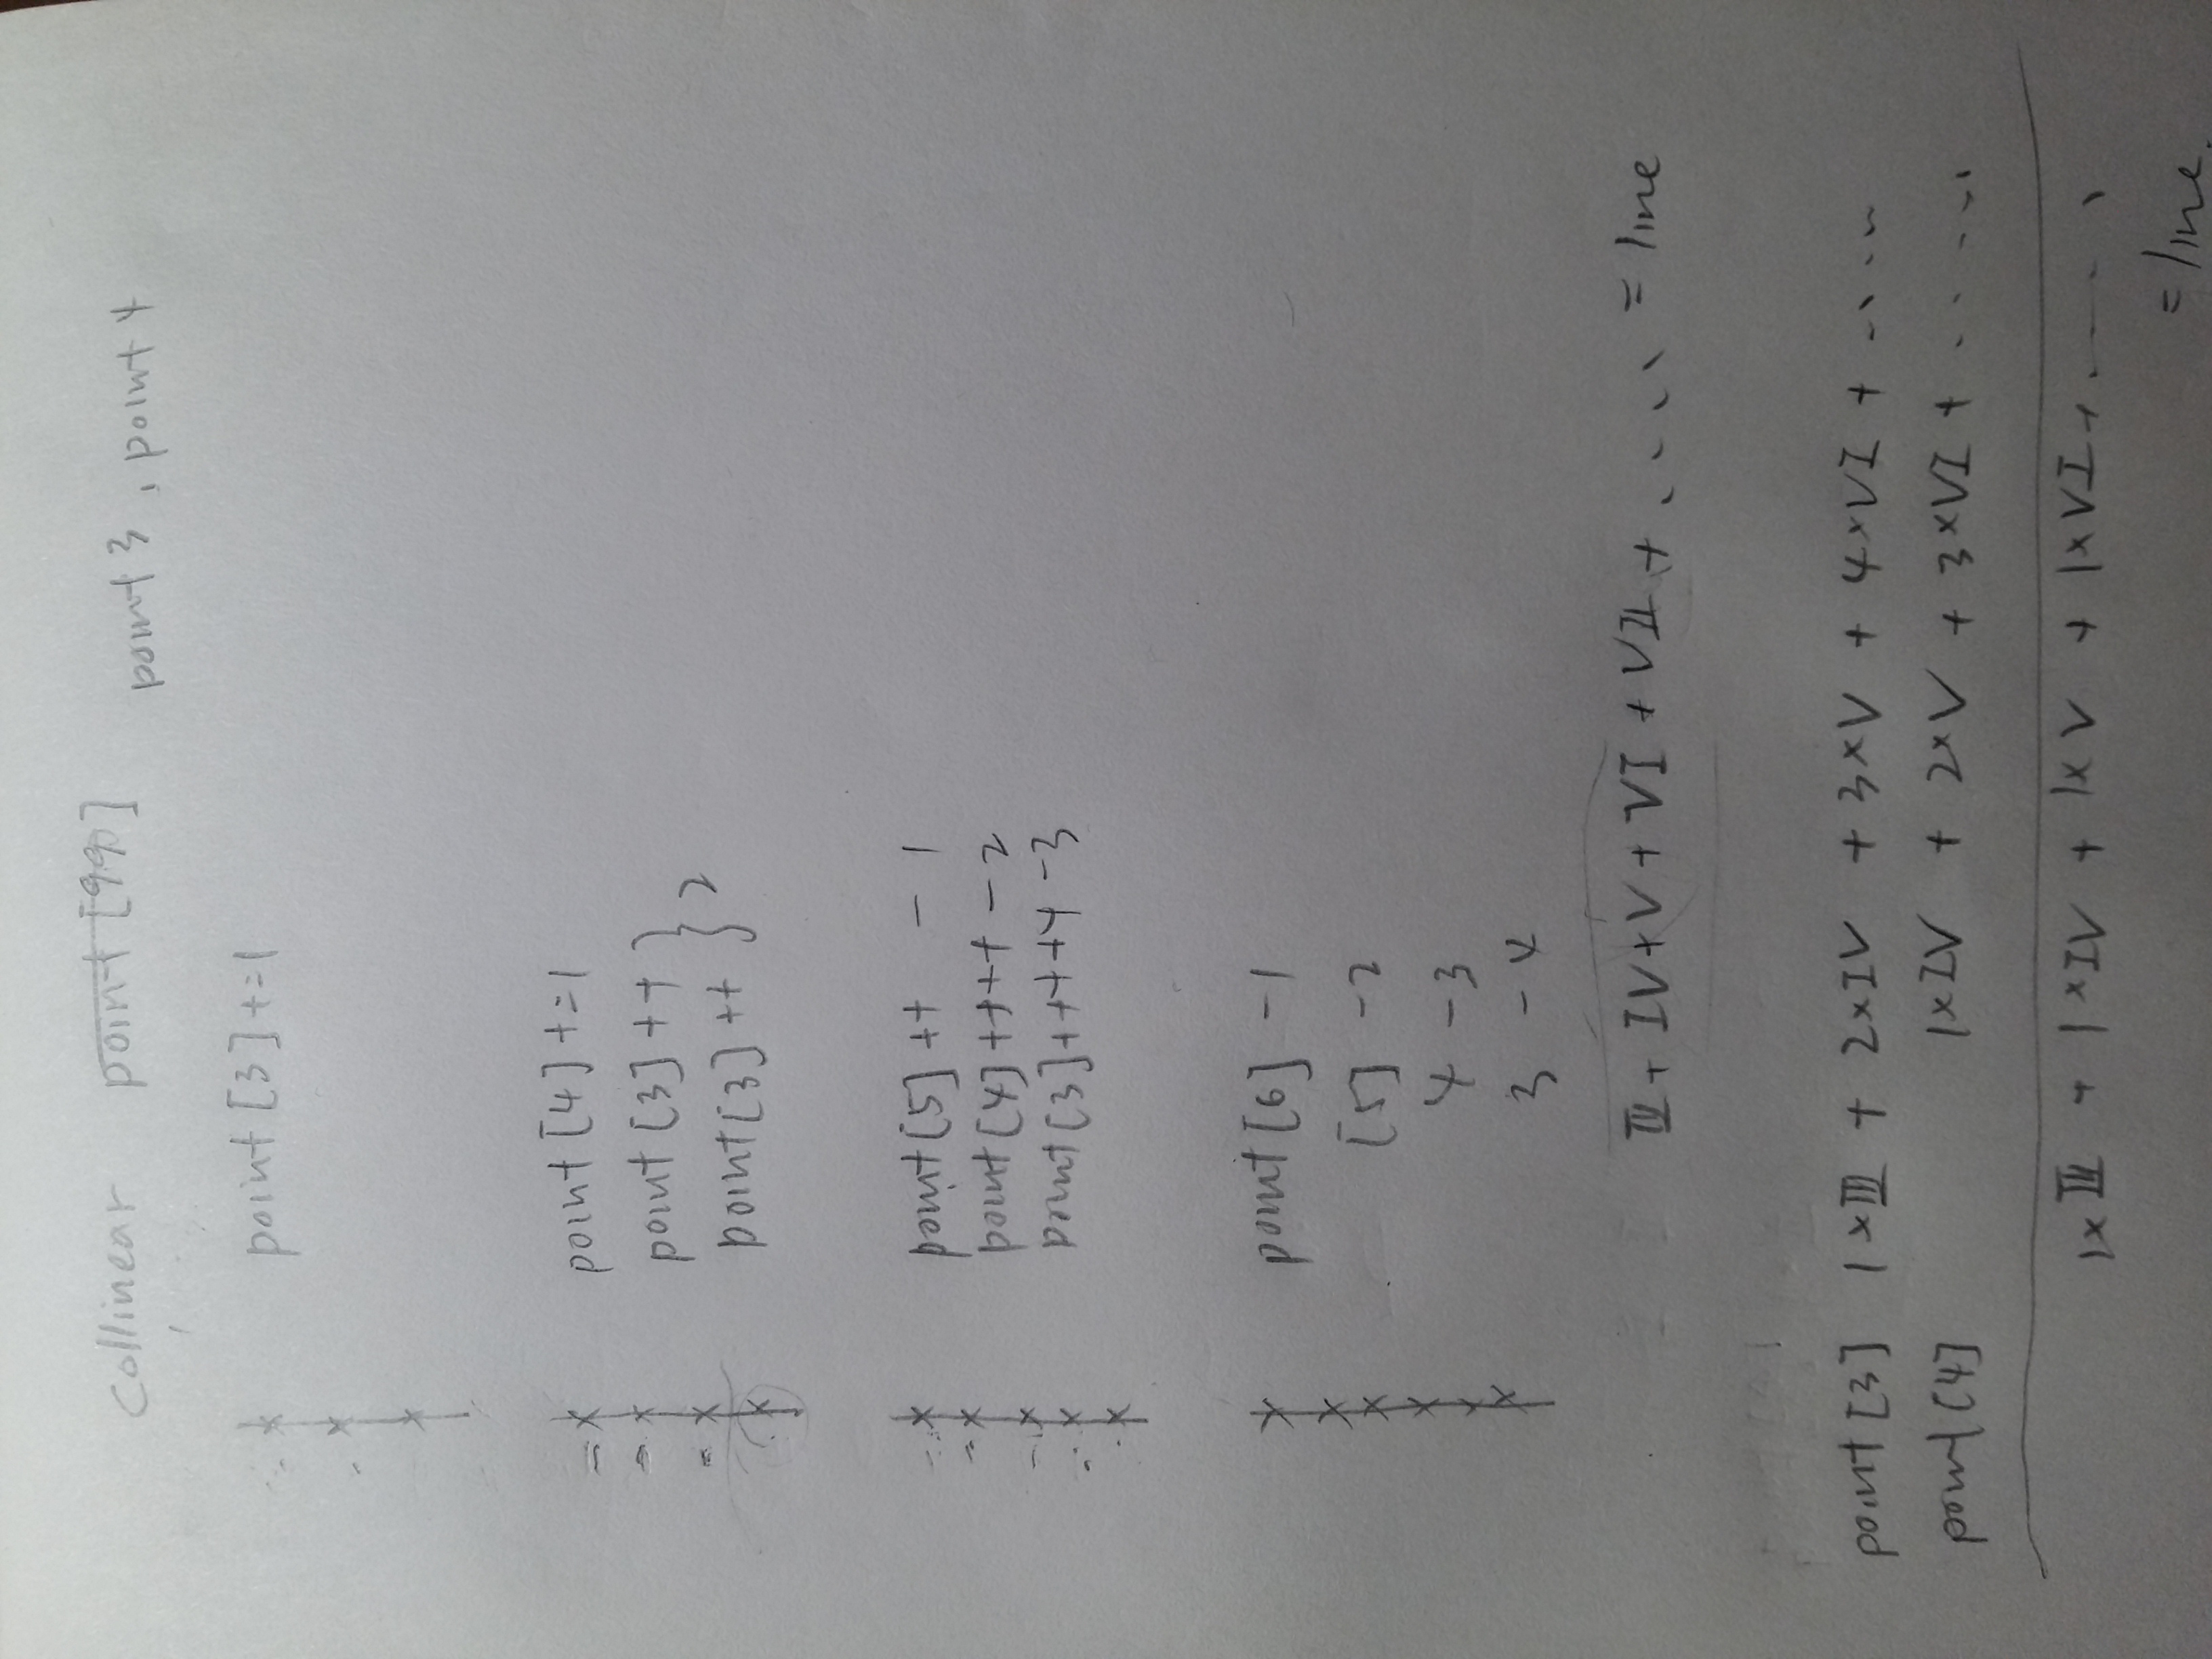 collinear point [99] point 3 , point 4
point [3] +=1
point [4] +=1
point [3] ++
point [3] ++ } 2
point [5] ++ - 1
point [4] ++++ - 2
point [3] ++++++ - 3
point [6] - 1
[5] - 2
4 - 3
3 - 4
III + IV + V + VI + VII + ..... = line
point [3] 1×III + 2×IV + 3×V + 4×VI + .....
point [4] 1×IV + 2×V + 3×VI + ......
1×III + 1×IV + 1×V + 1×VI + ......
= line.